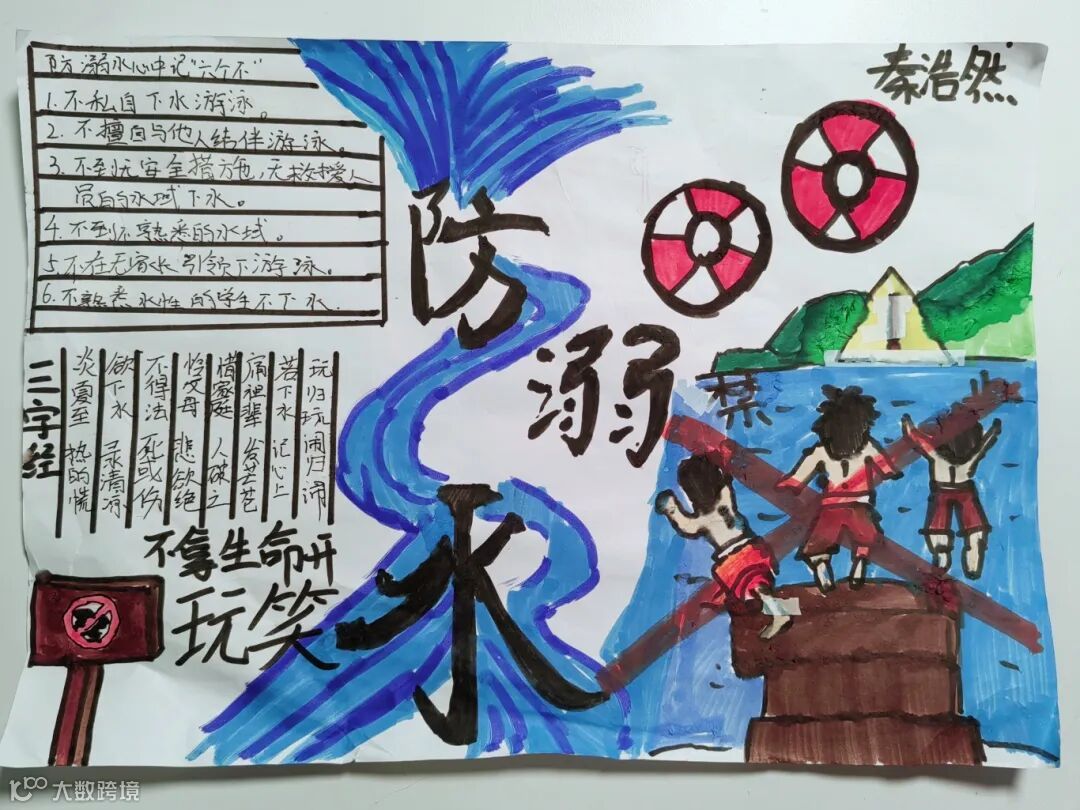 防溺水心中记"六个不"
1.不私自下水游泳。
2.不擅自与他人结伴游泳。
3.不到无安全措施,无救援人
员的水域下水。
4.不到不熟悉的水域。
5.不在无家长引领下游泳。
6.不熟悉水性的学生不下水.
秦浩然
防
溺
水
禁止
三字经
炎夏至 热的慌
欲下水
不得法 死或伤
父母 悲欲绝
惜家庭 人破之
痛祖辈 发苍苍
若下水 记心上
玩归玩 闹归闹
不拿生命开
玩笑
大数跨境